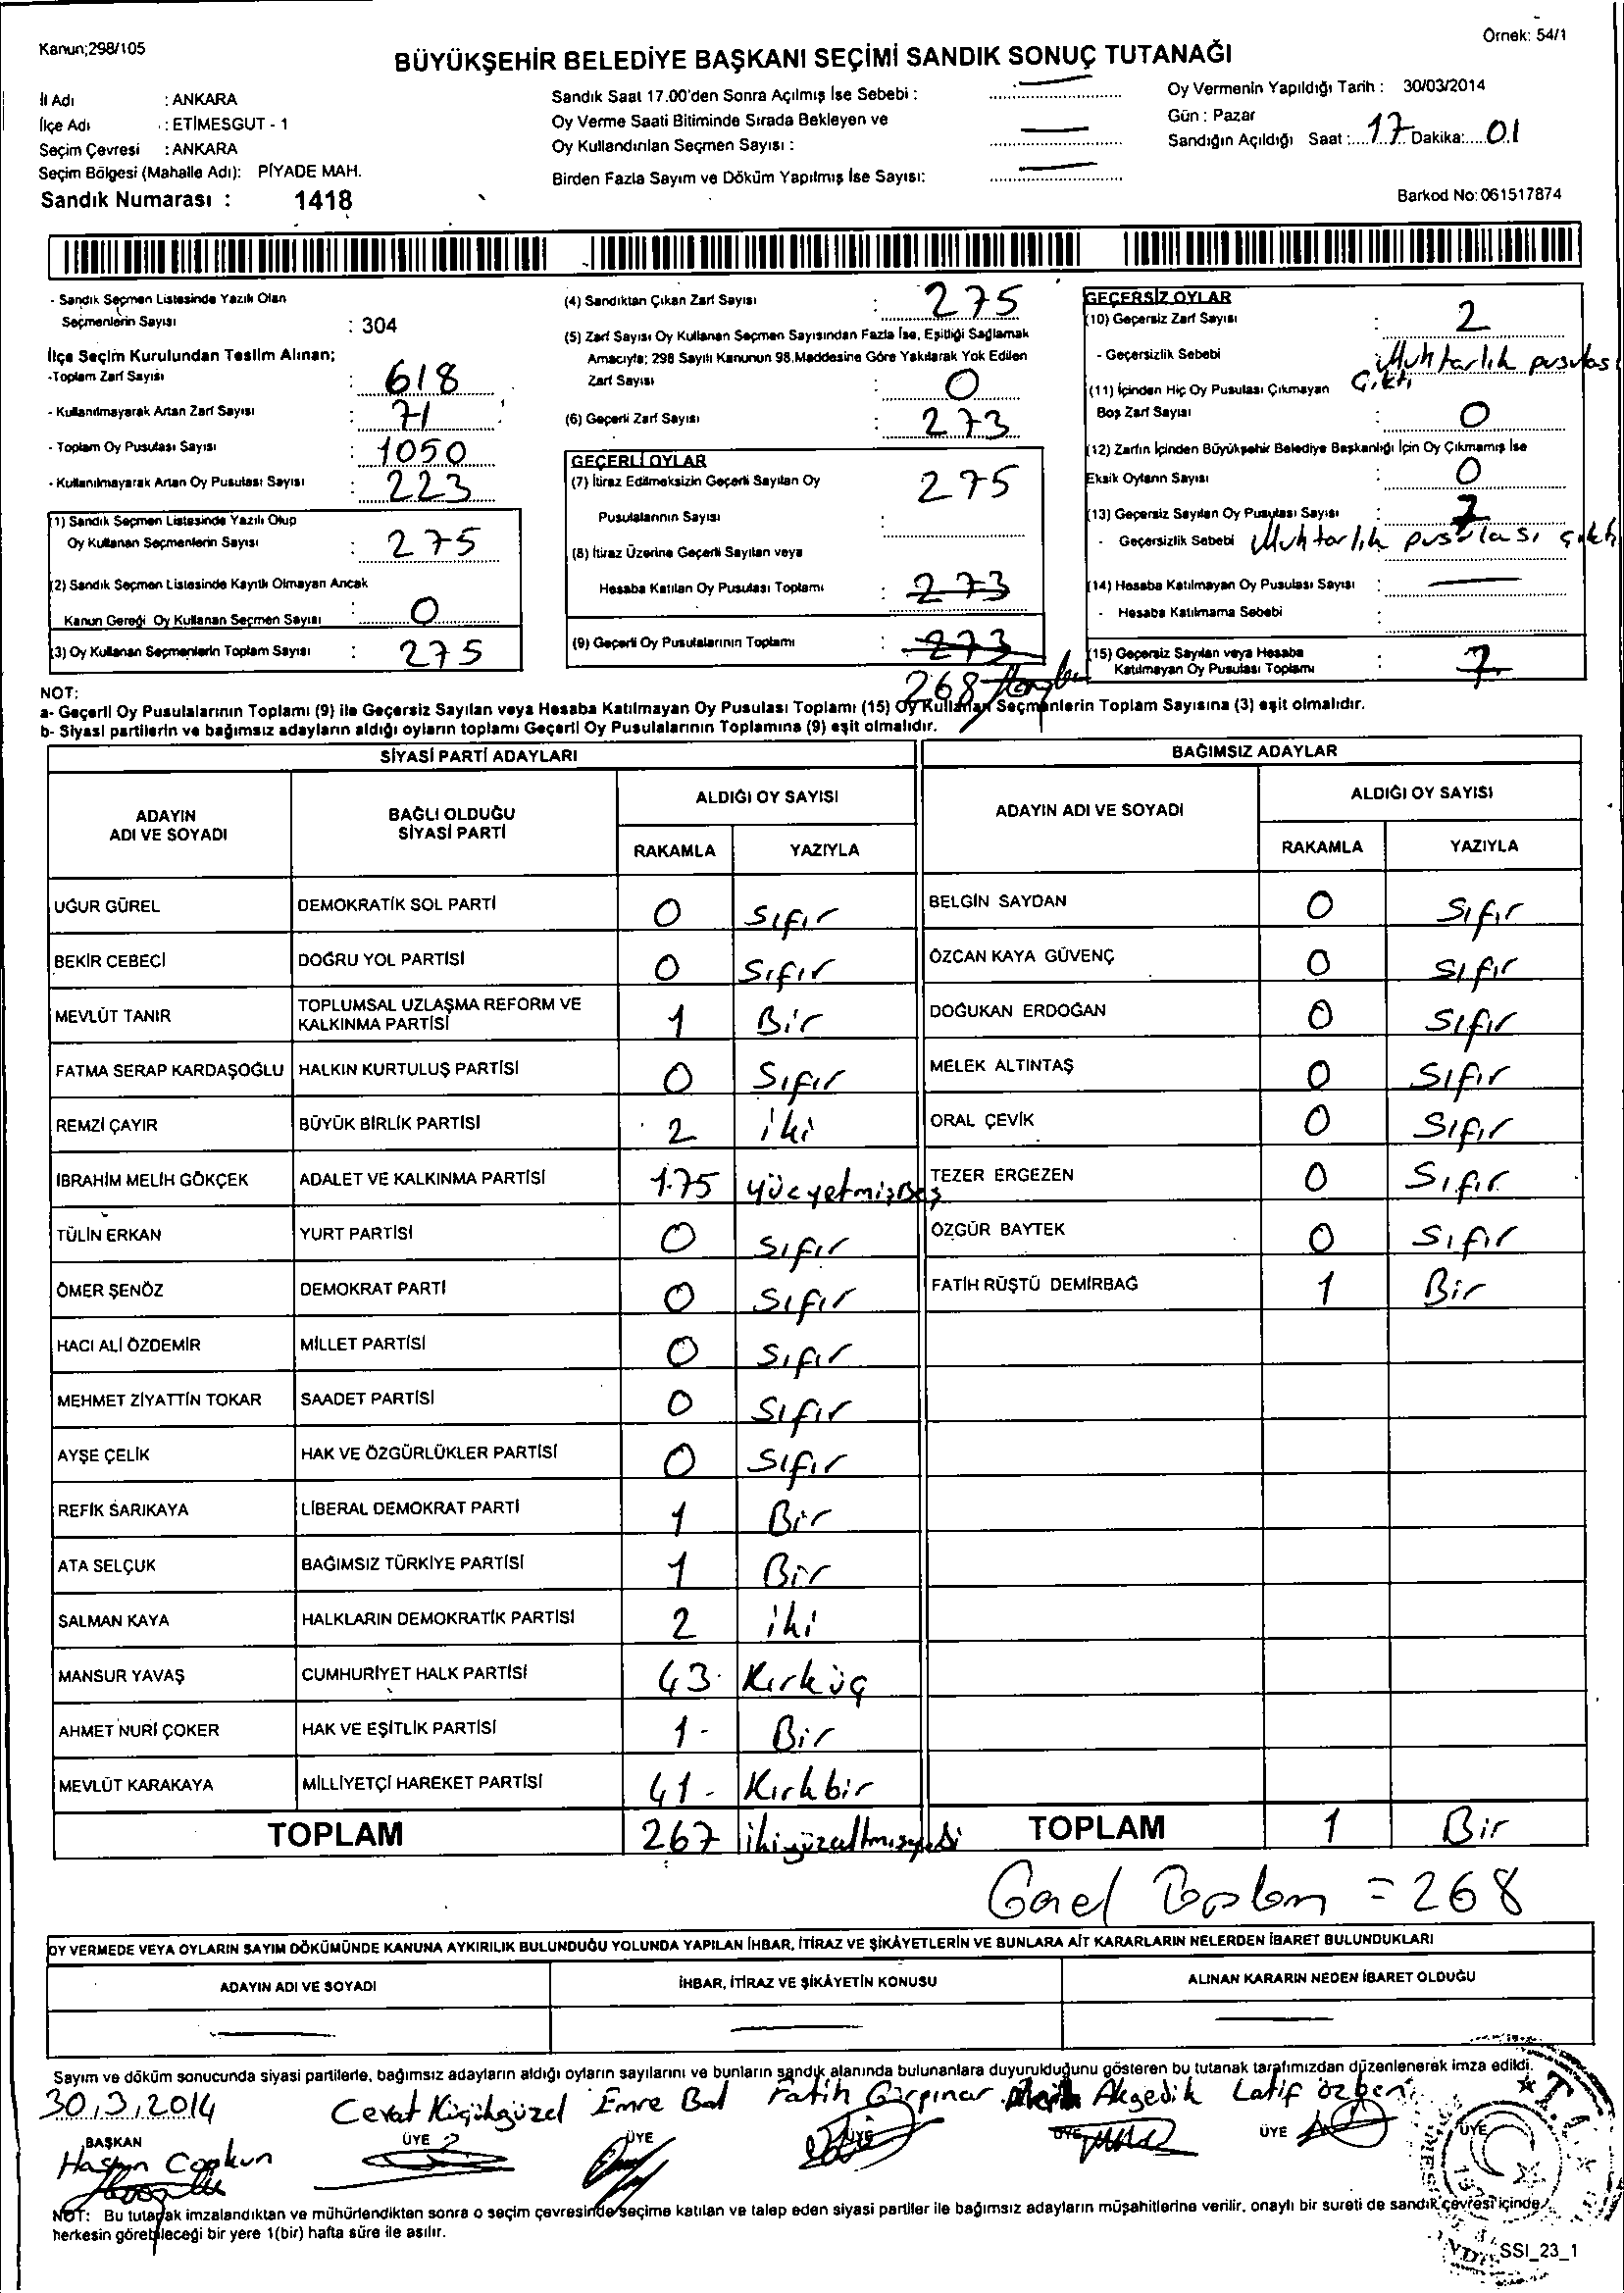 Kanun;298/105
Örnek: 54/1
BÜYÜKŞEHİR BELEDİYE BAŞKANI SEÇİMİ SANDIK SONUÇ TUTANAĞI
İl Adı : ANKARA
İlçe Adı : ETİMESGUT - 1
Seçim Çevresi : ANKARA
Seçim Bölgesi (Mahalle Adı): PİYADE MAH.
Sandık Numarası : 1418
Sandık Saat 17.00'den Sonra Açılmış İse Sebebi :
Oy Verme Saati Bitiminde Sırada Bekleyen ve
Oy Kullandırılan Seçmen Sayısı :
Birden Fazla Sayım ve Döküm Yapılmış İse Sayısı:
Oy Vermenin Yapıldığı Tarih : 30/03/2014
Gün : Pazar
Sandığın Açıldığı Saat : 17 Dakika: 01
Barkod No: 061517874
- Sandık Seçmen Listesinde Yazılı Olan
Seçmenlerin Sayısı : 304
İlçe Seçim Kurulundan Teslim Alınan;
-Toplam Zarf Sayısı : 618
- Kullanılmayarak Artan Zarf Sayısı : 71
- Toplam Oy Pusulası Sayısı : 1050
- Kullanılmayarak Artan Oy Pusulası Sayısı : 223
(1) Sandık Seçmen Listesinde Yazılı Olup
Oy Kullanan Seçmenlerin Sayısı : 275
(2) Sandık Seçmen Listesinde Kayıtlı Olmayan Ancak
Kanun Gereği Oy Kullanan Seçmen Sayısı : 0
(3) Oy Kullanan Seçmenlerin Toplam Sayısı : 275
(4) Sandıktan Çıkan Zarf Sayısı : 275
(5) Zarf Sayısı Oy Kullanan Seçmen Sayısından Fazla İse, Eşitliği Sağlamak
Amacıyla; 298 Sayılı Kanunun 98.Maddesine Göre Yakılarak Yok Edilen
Zarf Sayısı : 0
(6) Geçerli Zarf Sayısı : 273
GEÇERLİ OYLAR
(7) İtiraz Edilmeksizin Geçerli Sayılan Oy 275
Pusulalarının Sayısı :
(8) İtiraz Üzerine Geçerli Sayılan veya
Hesaba Katılan Oy Pusulası Toplamı : 273
(9) Geçerli Oy Pusulalarının Toplamı : 273
268
GEÇERSİZ OYLAR
(10) Geçersiz Zarf Sayısı : 2
- Geçersizlik Sebebi : Muhtarlık pusulası
çıktı
(11) İçinden Hiç Oy Pusulası Çıkmayan
Boş Zarf Sayısı : 0
(12) Zarfın İçinden Büyükşehir Belediye Başkanlığı İçin Oy Çıkmamış İse
Eksik Oyların Sayısı : 0
(13) Geçersiz Sayılan Oy Pusulası Sayısı : 7
- Geçersizlik Sebebi Muhtarlık pusulası çıktı
(14) Hesaba Katılmayan Oy Pusulası Sayısı :
- Hesaba Katılmama Sebebi :
(15) Geçersiz Sayılan veya Hesaba
Katılmayan Oy Pusulası Toplamı : 7
NOT:
a- Geçerli Oy Pusulalarının Toplamı (9) ile Geçersiz Sayılan veya Hesaba Katılmayan Oy Pusulası Toplamı (15) Oy Kullanan Seçmenlerin Toplam Sayısına (3) eşit olmalıdır.
b- Siyasi partilerin ve bağımsız adayların aldığı oyların toplamı Geçerli Oy Pusulalarının Toplamına (9) eşit olmalıdır.
SİYASİ PARTİ ADAYLARI
BAĞIMSIZ ADAYLAR
ADAYIN ADI VE SOYADI
BAĞLI OLDUĞU SİYASİ PARTİ
ALDIĞI OY SAYISI
RAKAMLA YAZIYLA
ADAYIN ADI VE SOYADI
ALDIĞI OY SAYISI
RAKAMLA YAZIYLA
UĞUR GÜREL DEMOKRATİK SOL PARTİ 0 Sıfır BELGİN SAYDAN 0 Sıfır
BEKİR CEBECİ DOĞRU YOL PARTİSİ 0 Sıfır ÖZCAN KAYA GÜVENÇ 0 Sıfır
MEVLÜT TANIR TOPLUMSAL UZLAŞMA REFORM VE KALKINMA PARTİSİ 1 Bir DOĞUKAN ERDOĞAN 0 Sıfır
FATMA SERAP KARDAŞOĞLU HALKIN KURTULUŞ PARTİSİ 0 Sıfır MELEK ALTINTAŞ 0 Sıfır
REMZİ ÇAYIR BÜYÜK BİRLİK PARTİSİ 2 iki ORAL ÇEVİK 0 Sıfır
İBRAHİM MELİH GÖKÇEK ADALET VE KALKINMA PARTİSİ 175 yücyetmişBeş TEZER ERGEZEN 0 Sıfır
TÜLİN ERKAN YURT PARTİSİ 0 Sıfır ÖZGÜR BAYTEK 0 Sıfır
ÖMER ŞENÖZ DEMOKRAT PARTİ 0 Sıfır FATİH RÜŞTÜ DEMİRBAĞ 1 Bir
HACI ALİ ÖZDEMİR MİLLET PARTİSİ 0 Sıfır
MEHMET ZİYATTİN TOKAR SAADET PARTİSİ 0 Sıfır
AYŞE ÇELİK HAK VE ÖZGÜRLÜKLER PARTİSİ 0 Sıfır
REFİK SARIKAYA LİBERAL DEMOKRAT PARTİ 1 Bir
ATA SELÇUK BAĞIMSIZ TÜRKİYE PARTİSİ 1 Bir
SALMAN KAYA HALKLARIN DEMOKRATİK PARTİSİ 2 iki
MANSUR YAVAŞ CUMHURİYET HALK PARTİSİ 43 Kırküç
AHMET NURİ ÇOKER HAK VE EŞİTLİK PARTİSİ 1 - Bir
MEVLÜT KARAKAYA MİLLİYETÇİ HAREKET PARTİSİ 41 - Kırkbir
TOPLAM 267 ikiyüzaltmışyedi TOPLAM 1 Bir
Genel Toplam = 268
OY VERMEDE VEYA OYLARIN SAYIM DÖKÜMÜNDE KANUNA AYKIRILIK BULUNDUĞU YOLUNDA YAPILAN İHBAR, İTİRAZ VE ŞİKÂYETLERİN VE BUNLARA AİT KARARLARIN NELERDEN İBARET BULUNDUKLARI
ADAYIN ADI VE SOYADI İHBAR, İTİRAZ VE ŞİKÂYETİN KONUSU ALINAN KARARIN NEDEN İBARET OLDUĞU
Sayım ve döküm sonucunda siyasi partilerle, bağımsız adayların aldığı oyların sayılarını ve bunların sandık alanında bulunanlara duyurulduğunu gösteren bu tutanak tarafımızdan düzenlenerek imza edildi.
30.3.2014 Cevat Küçükgüzel Emre Bal Fatih Gırpınar Akgedik Latif özben
BAŞKAN ÜYE ÜYE ÜYE ÜYE ÜYE ÜYE
Hasan Coşkun
NOT: Bu tutanak imzalandıktan ve mühürlendikten sonra o seçim çevresinde seçime katılan ve talep eden siyasi partiler ile bağımsız adayların müşahitlerine verilir, onaylı bir sureti de sandık çevresi içinde
herkesin görebileceği bir yere 1(bir) hafta süre ile asılır.
SSI_23_1